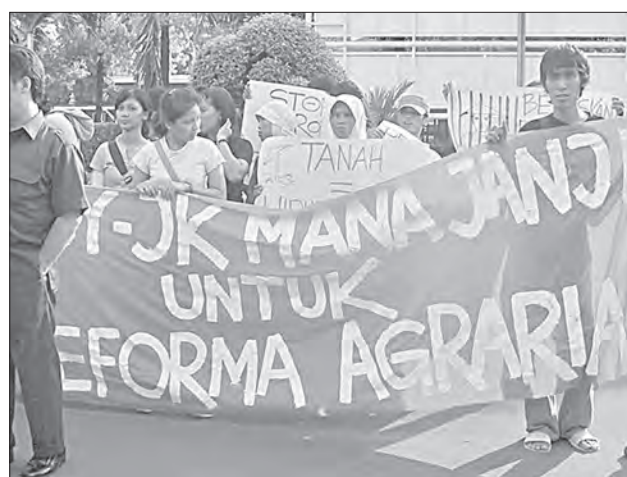 STO
RO
TANAH
=
BE
Y-JK MANA JANJ
UNTUK
EFORMA AGRARIA